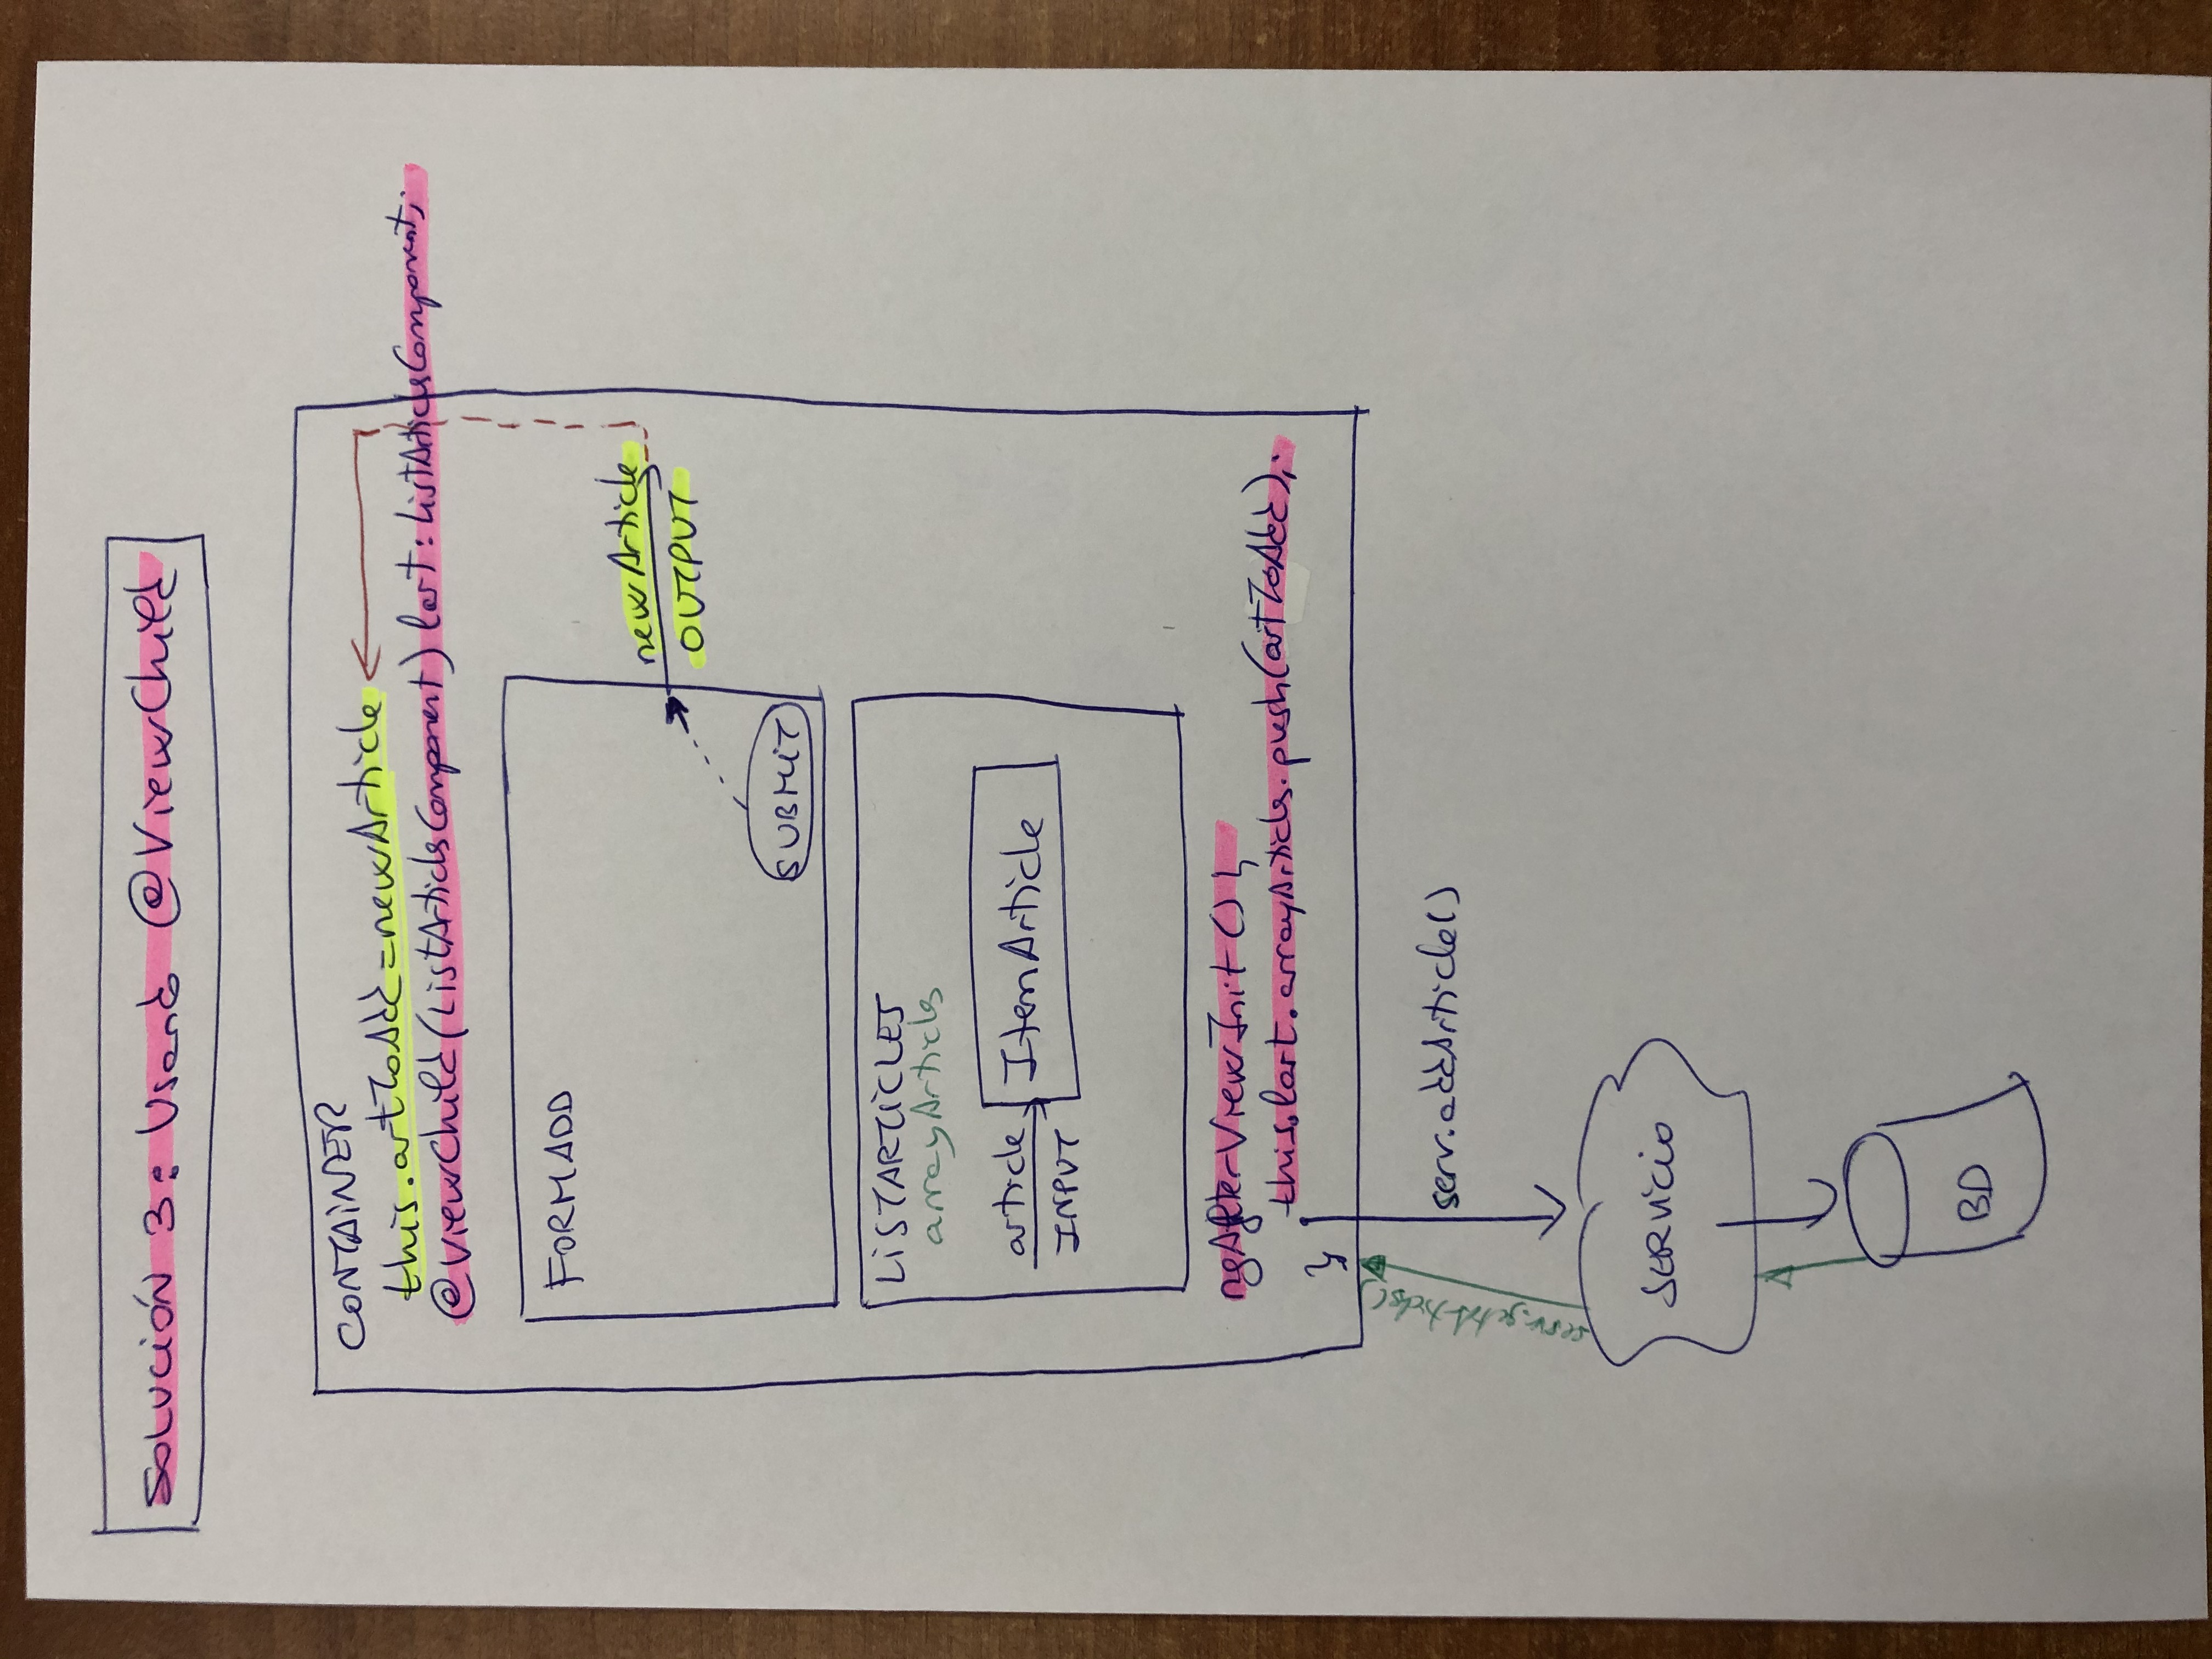 SOLUCIÓN 3: Usando @ViewChild
CONTAINER
this.artToAdd=newArticle
@ViewChild(ListArticlesComponent) lart: ListArticlesComponent;
FORMADD
newArticle
OUTPUT
SUBMIT
LISTARTICLES
arrayArticles
article
INPUT
ItemArticle
ngAfterViewInit() {
this.lart.arrayArticles.push(artToAdd);
}
serv.getArticles()
serv.addArticle()
SERVICIO
BD